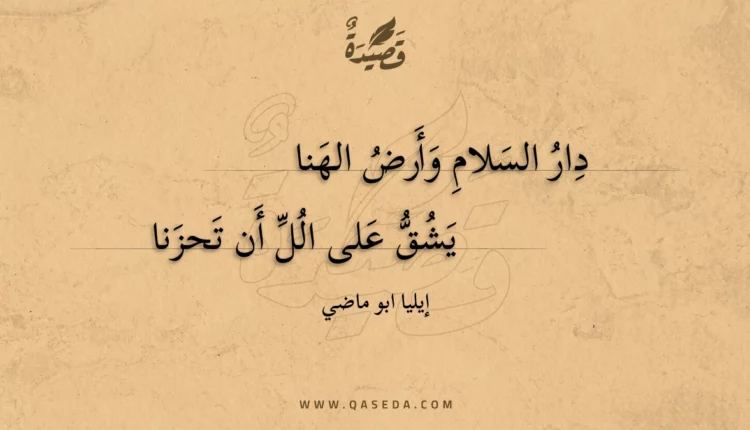 قَصِيْدَةٌ
دِارُ السَلامِ وَأَرضُ الهَنا
يَشُقُّ عَلى الُلِّ أَن تَحزَنا
إيليا ابو ماضي
WWW.QASEDA.COM